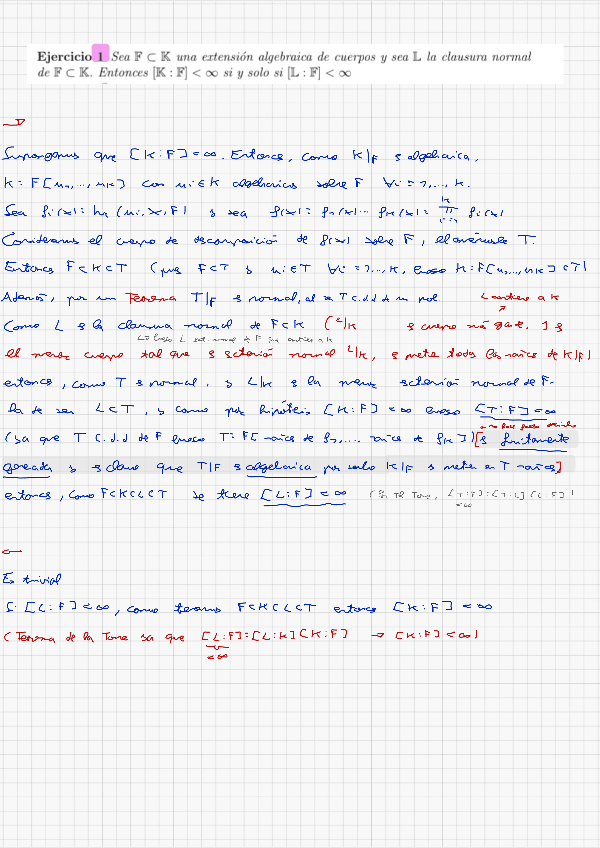 Ejercicio 1 Sea 𝔽 ⊂ 𝕂 una extensión algebraica de cuerpos y sea 𝕃 la clausura normal
de 𝔽 ⊂ 𝕂. Entonces [𝕂 : 𝔽] < ∞ si y solo si [𝕃 : 𝔽] < ∞
Supongamos que [K:F] < ∞. Entonces, como K|F es algebraica,
K = F[u1, ..., uk] con ui ∈ K algebraicos sobre F ∀i=1,..., k.
Sea fi(x) = Irr(ui, X, F) y sea f(x) = f1(x)... fk(x) = ∏ fi(x)
Consideramos el cuerpo de descomposición de f(x) sobre F, llamémosle T.
Entonces F⊂K⊂T (pues F⊂T y ui ∈ T ∀i=1,..., k, luego K=F[u1,...,uk] ⊂ T)
Además, por un Teorema T|F es normal, al ser T c.d.d de un pol L contiene a K
Como L es la clausura normal de F⊂K
el menor cuerpo tal que es extensión normal L|K, se mete todas las raíces de K|F)
entonces, como T es normal, y L|K es la menor extensión normal de F.
ha de ser L⊂T, y como por hipótesis [K:F] < ∞ luego [T:F] < ∞
(ya que T c.d.d de F luego T = F[raíces de f1,... raíces de fk]) [es finitamente
generada y es claro que T|F es algebraica por serlo K|F y meter en T raíces]
entonces, como F⊂K⊂L⊂T se tiene [L:F] < ∞ [T:F]=[T:L][L:F]
<∞
Es trivial
Si [L:F] < ∞, como tenemos F⊂K⊂L⊂T entonces [K:F] < ∞
(Teorema de la Torre ya que [L:F]=[L:K][K:F] → [K:F] < ∞)
<∞